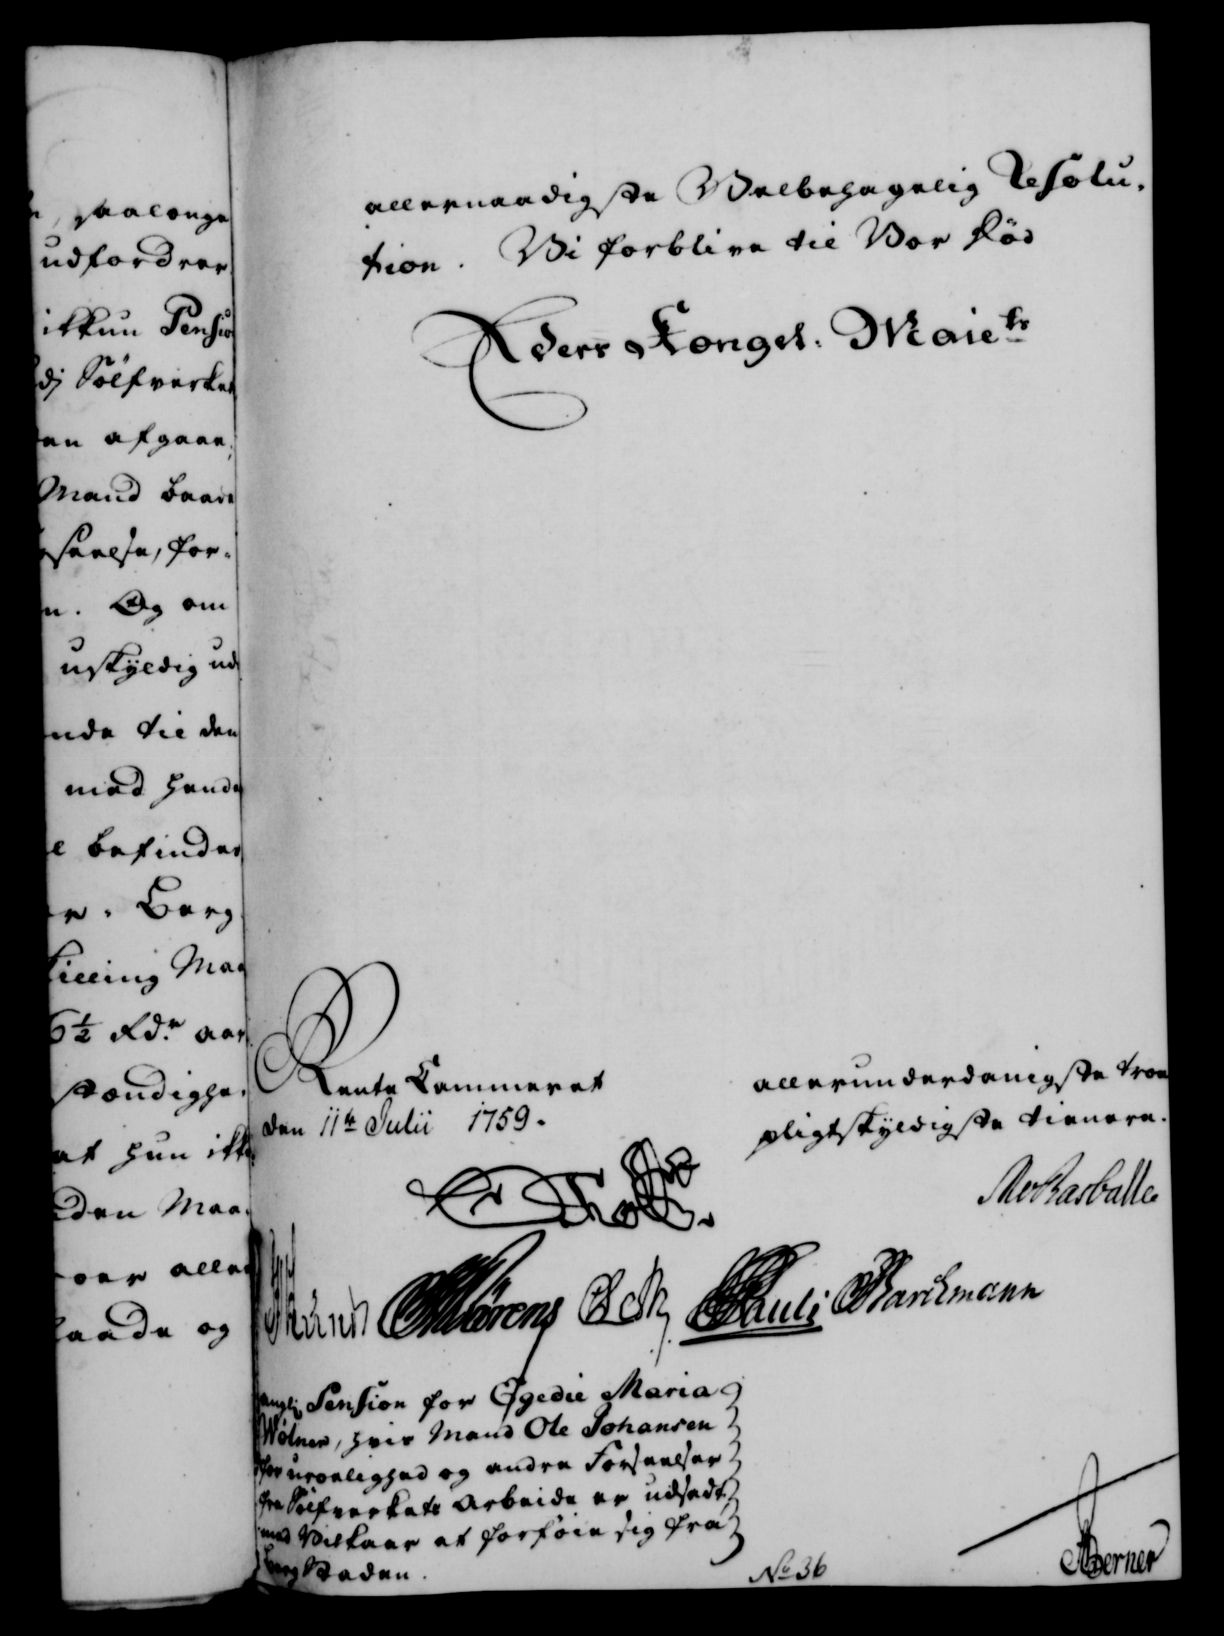 saalenge
udfordrer
ikkun Pensio
Sølfverket
afgaae,
Mand baade
for-
Og om
uskyldig ud
til den
med hende
befinder
Berg
Maa
6½ Rdr aar
at hun ikke
den Maa-
aller
og
allernaadigste Velbehagelig Resolu-
tion. Vi forblive til Vor Död
Eders Kongel: Maiets
Rente Cammeret
den 11te Julii 1759.
allerunderdanigste troe
pligtskyldigste tienere.
Rasballe
Barchmann
Pension for Egedie Maria
Wølner, hvis Mand Ole Johansen
for uroelighed og andre Forseelser
fra Sölfverkets Arbeide er udsadt,
med Vilkaar at forföie sig fra
Berg Staden.
No 36
Berner